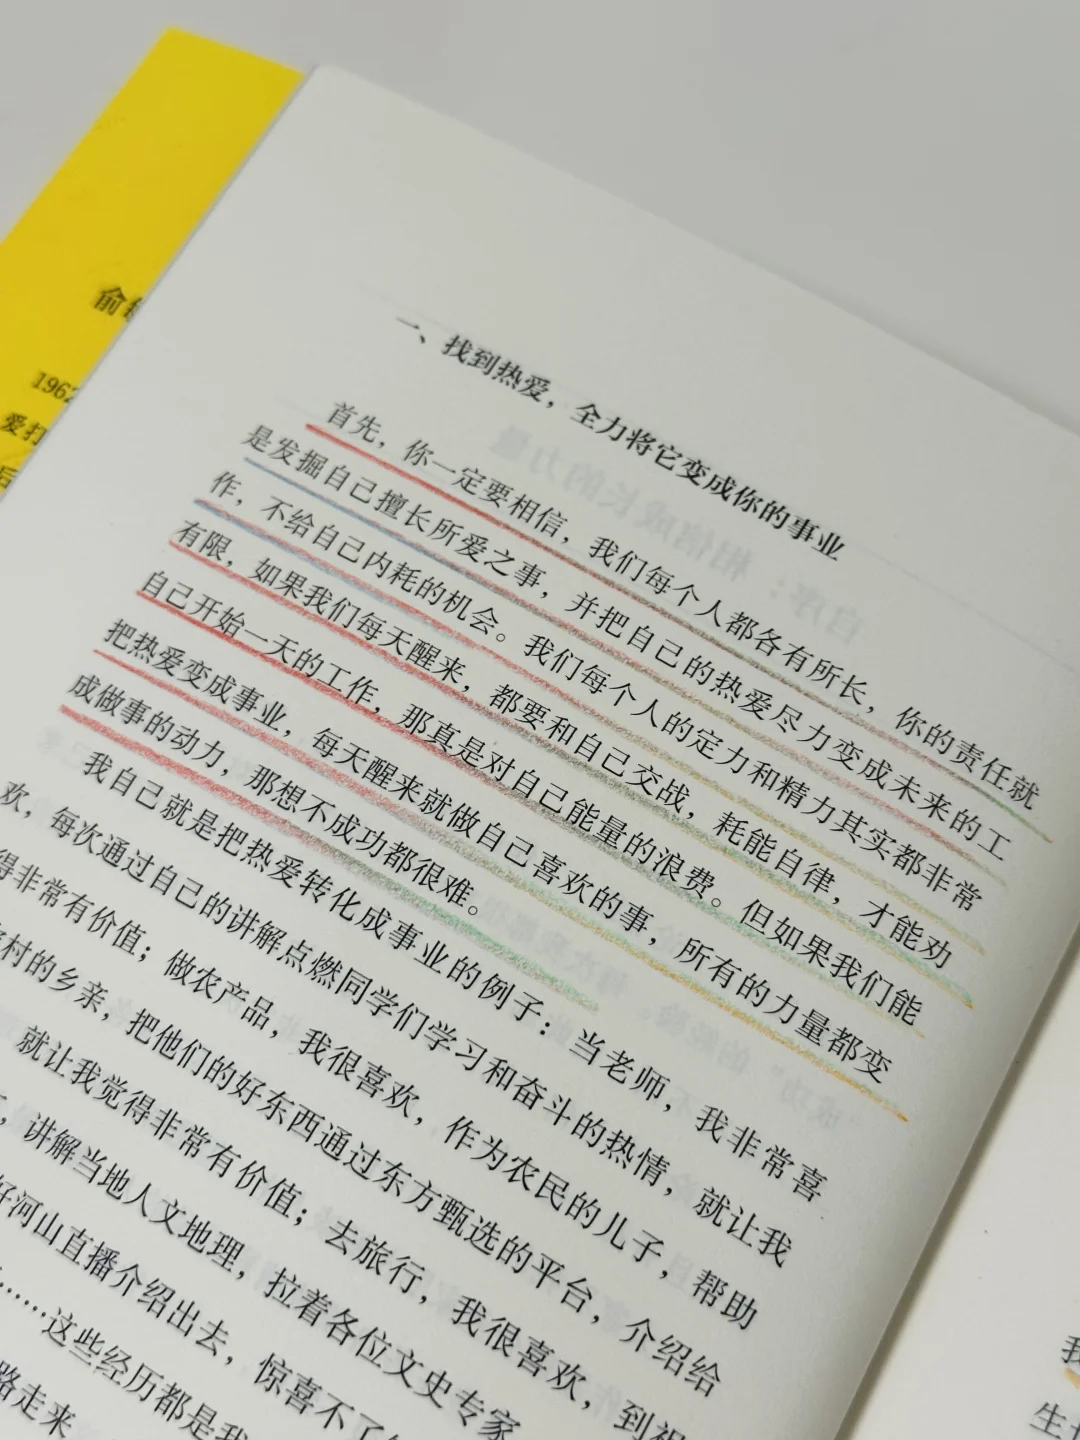 俞
1962
爱打
后
一、找到热爱，全力将它变成你的事业
首先，你一定要相信，我们每个人都各有所长，你的责任就
是发掘自己擅长所爱之事，并把自己的热爱尽力变成未来的工
作，不给自己内耗的机会。我们每个人的定力和精力其实都非常
有限，如果我们每天醒来，都要和自己交战，耗能自律，才能劝
自己开始一天的工作，那真是对自己能量的浪费。但如果我们能
把热爱变成事业，每天醒来就做自己喜欢的事，所有的力量都变
成做事的动力，那想不成功都很难。
我自己就是把热爱转化成事业的例子：当老师，我非常喜
欢，每次通过自己的讲解点燃同学们学习和奋斗的热情，就让我
得非常有价值；做农产品，我很喜欢，作为农民的儿子，帮助
村的乡亲，把他们的好东西通过东方甄选的平台，介绍给
就让我觉得非常有价值；去旅行，我很喜欢，到祖
，讲解当地人文地理，拉着各位文史专家
好河山直播介绍出去，惊喜不了
……这些经历都是我
路走来
我
生